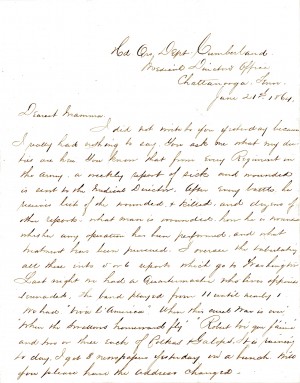 Hd Qrs Dept. Cumberland
Medical Directors Office
Chattanooga Tenn
June 21st 1864.
Dearest Mamma
I did not write to you yesterday because
I really had nothing to say. You ask me what my du-
ties are here. You know that from every Regiment in
the army, a weekly report of sick and wounded
is sent to the Medical Director. After every battle he
receives lists of the wounded & killed, and dozens of
other reports. what man is wounded, how he is wounded
whether any operation has been performed, and what
treatment has been pursued. I oversee the
all these into 5 or 6 reports which go to Washington
Last night we had a Quartermaster who lives opposite
serenaded, the band played from 11 until nearly 1
We had "When this cruel War is over"
"When the Swallows homeward fly" "Robert
and two or three each of Polkas & Galops. It is raining
to day. I got 8 newspapers yesterday in a bunch. Will
you please have the address changed.